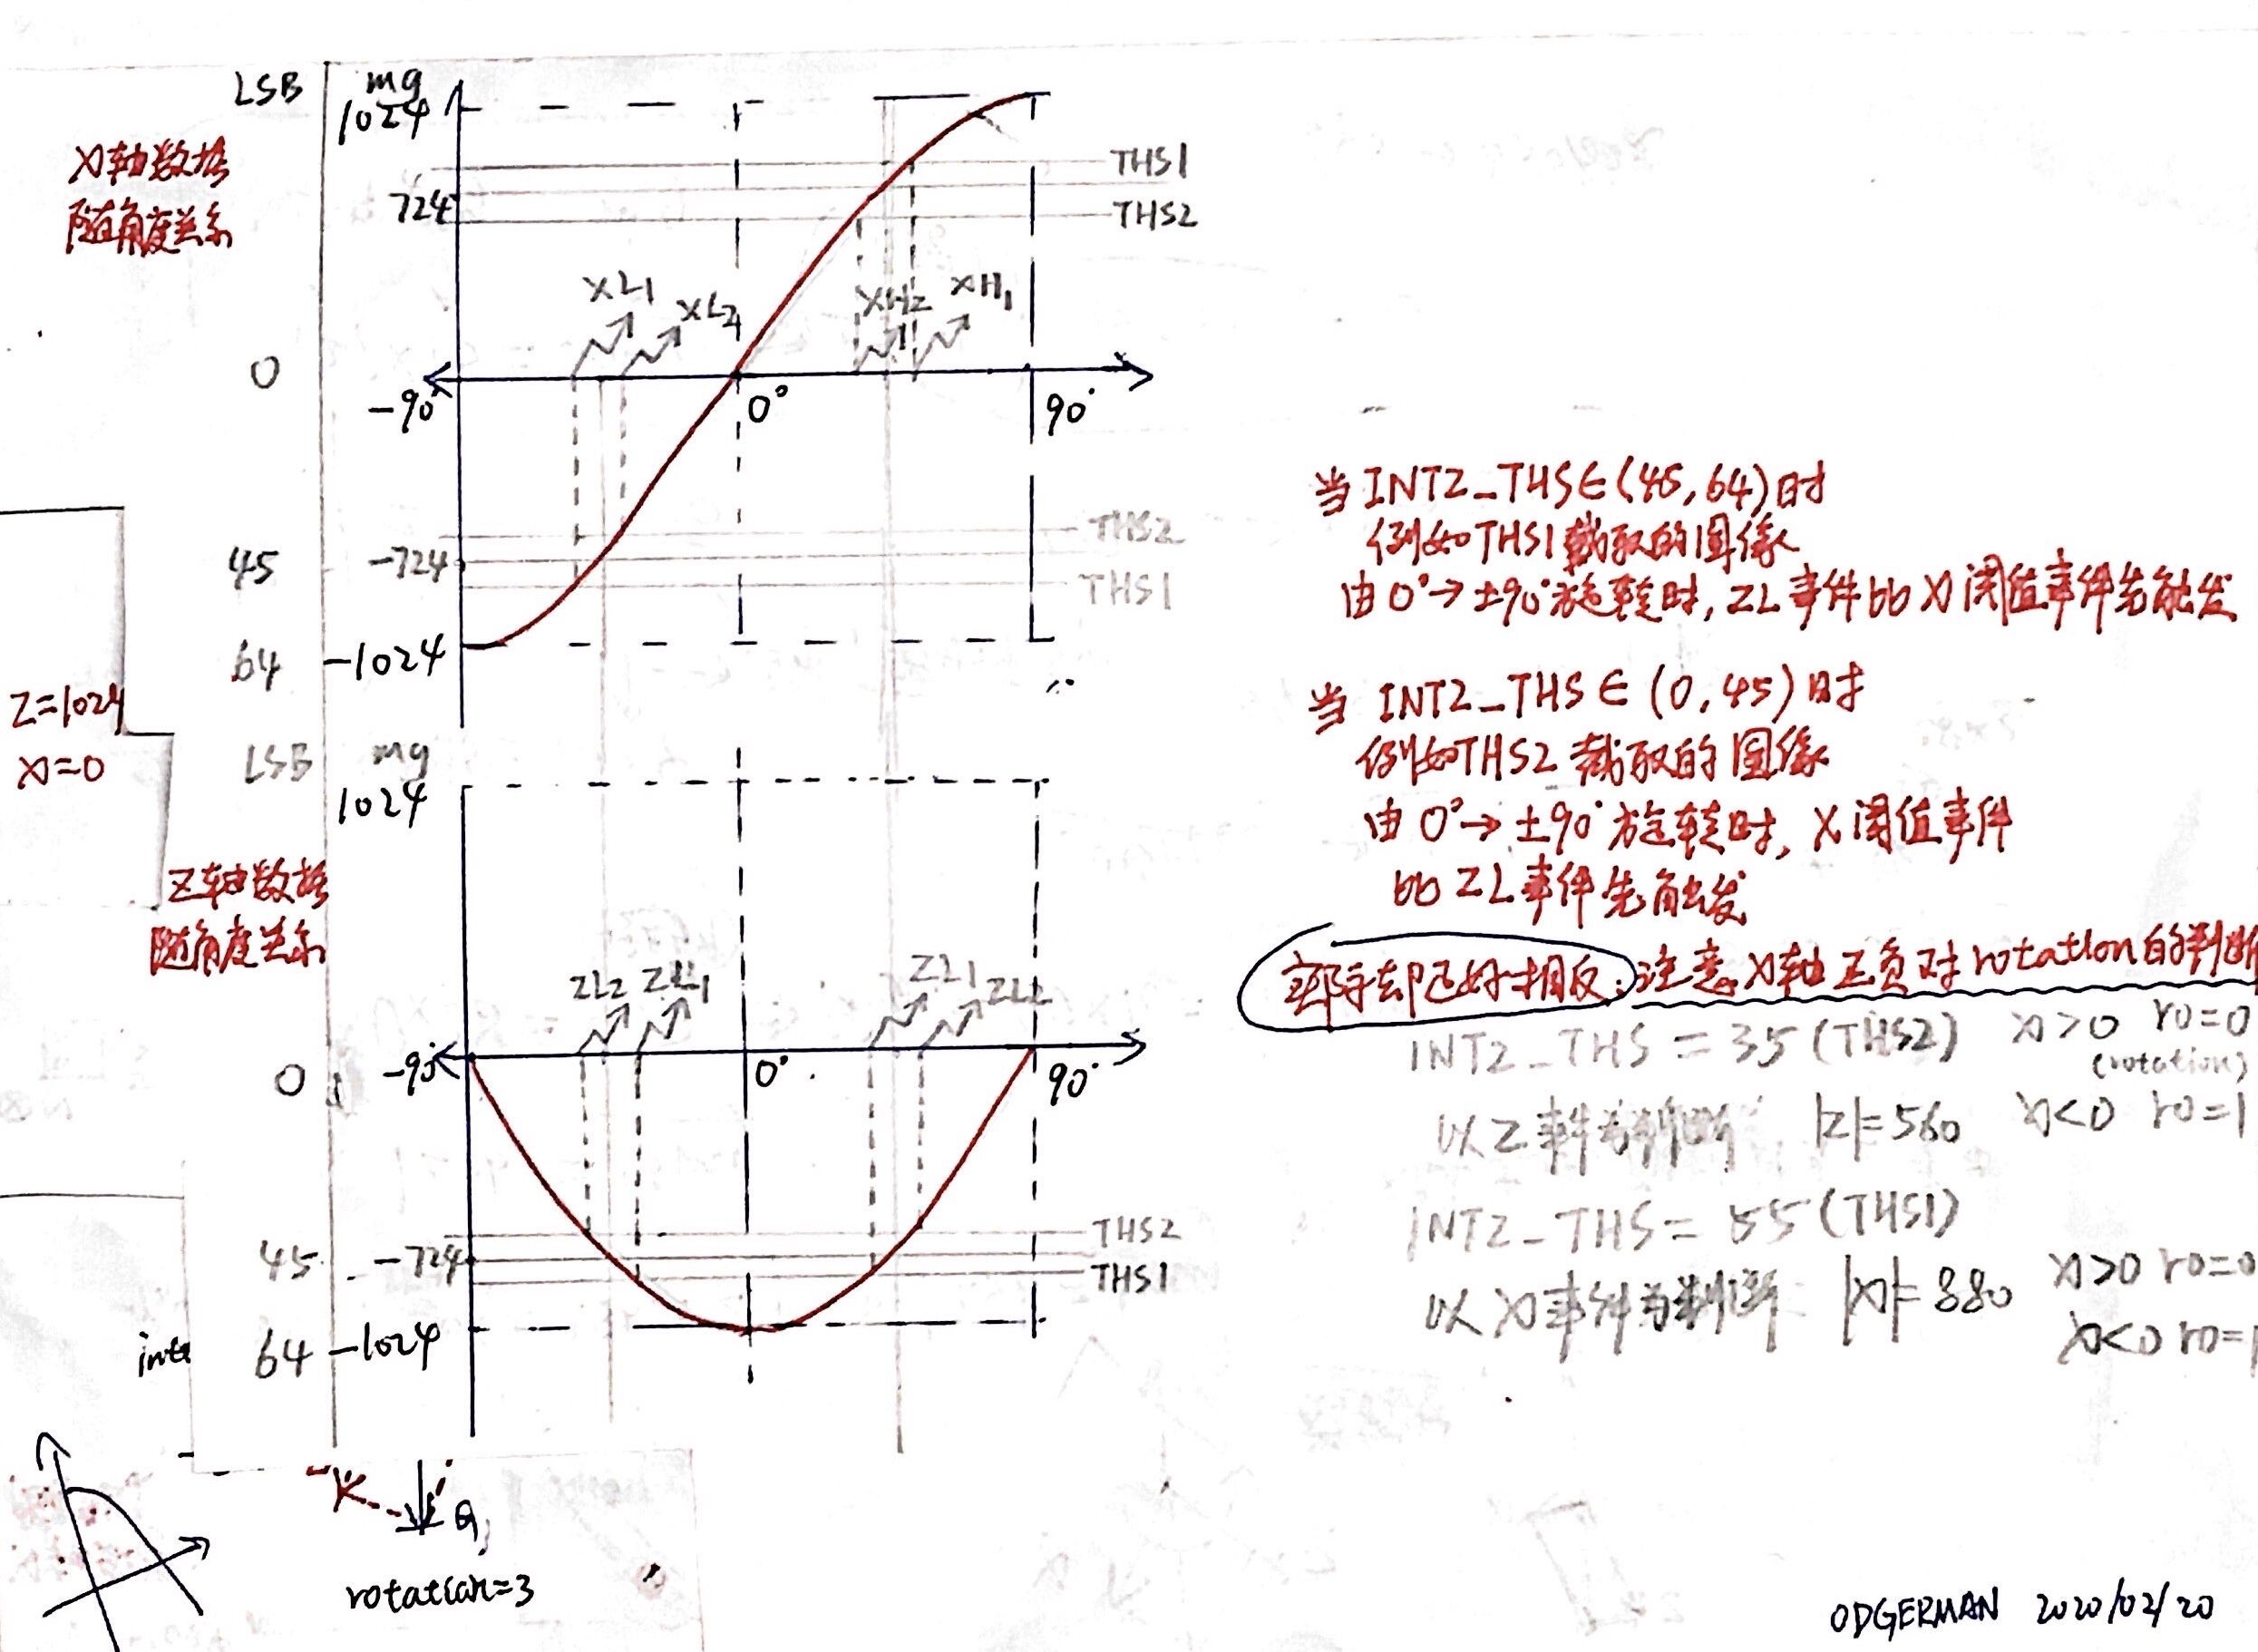 LSB mg
1024
X轴数据
随角度关系
724
THS1
THS2
XL1 XL2 XH2 XH1
0
-90° 0° 90°
THS2
45 -724
THS1
64 -1024
Z=1024
X=0
LSB mg
1024
Z轴数据
随角度关系
ZL2 ZL1 ZL1 ZL2
0 -90° 0° 90°
THS2
45 -724
THS1
64 -1024
inte
rotation=3
当 INT2_THS∈(45,64)时
例如THS1截取的图像
由0°→±90°旋转时,ZL事件比X阈值事件先触发
当 INT2_THS∈(0,45)时
例如THS2截取的图像
由0°→±90°旋转时,X阈值事件
比ZL事件先触发
恰好相反;注意X轴正负对rotation的判断
INT2_THS=35(THS2) X>0 ro=0
(rotation)
以Z事件为判断 |Z|=560 X<0 ro=1
INT2_THS=55(THS1)
以X事件为判断 |X|=880 X>0 ro=0
X<0 ro=1
ODGERMAN 2020/02/20